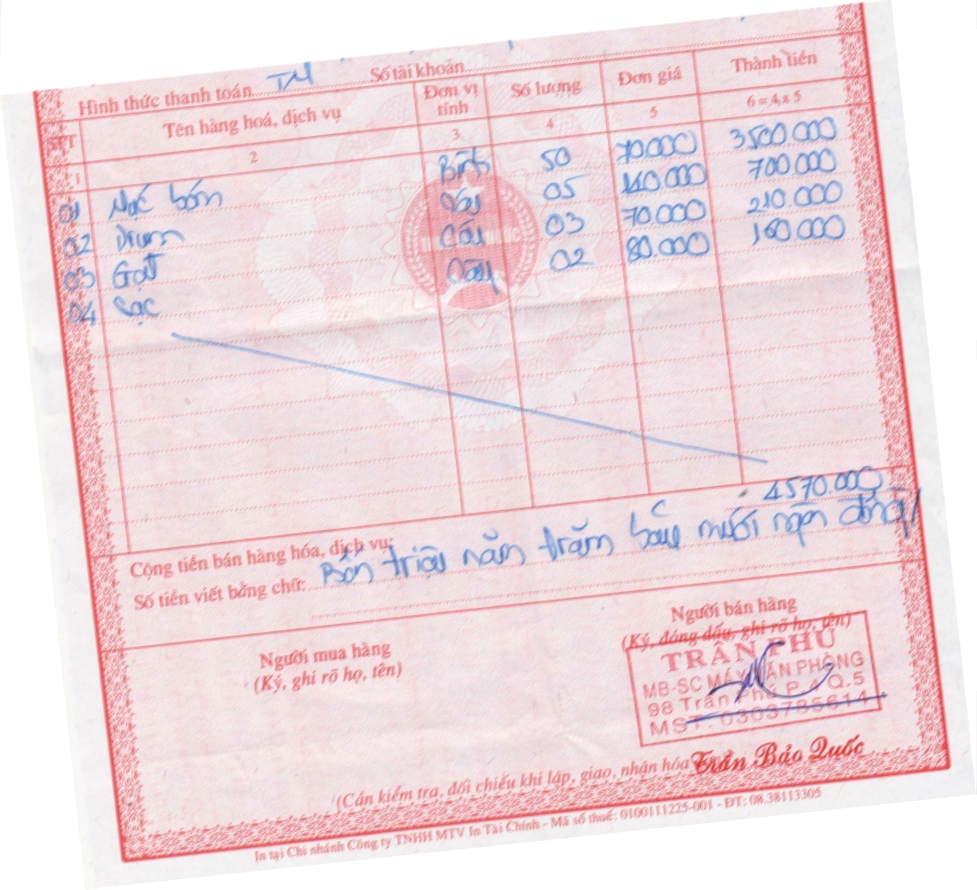 Hình thức thanh toán TM Số tài khoản
STT Tên hàng hoá, dịch vụ Đơn vị tính Số lượng Đơn giá Thành tiền
1 2 3 4 5 6 = 4 x 5
01 Mực bơm Bình 50 70.000 3.500.000
02 Drum Cây 05 140.000 700.000
03 Gạt Cây 03 70.000 210.000
04 Sạc Cây 02 80.000 160.000
Cộng tiền bán hàng hóa, dịch vụ: 4570.000
Số tiền viết bằng chữ: Bốn triệu năm trăm bảy mươi ngàn đồng
Người mua hàng
(Ký, ghi rõ họ, tên)
Người bán hàng
(Ký, đóng dấu, ghi rõ họ, tên)
TRẦN PHÚ
MB-SC MÁY VĂN PHÒNG
98 Trần Phú P.4 Q.5
MST: 0303785614
Trần Bảo Quốc
(Cần kiểm tra, đối chiếu khi lập, giao, nhận hóa
In tại Chi nhánh Công ty TNHH MTV In Tài Chính - Mã số thuế: 0100111225-001 - ĐT: 08.38113305